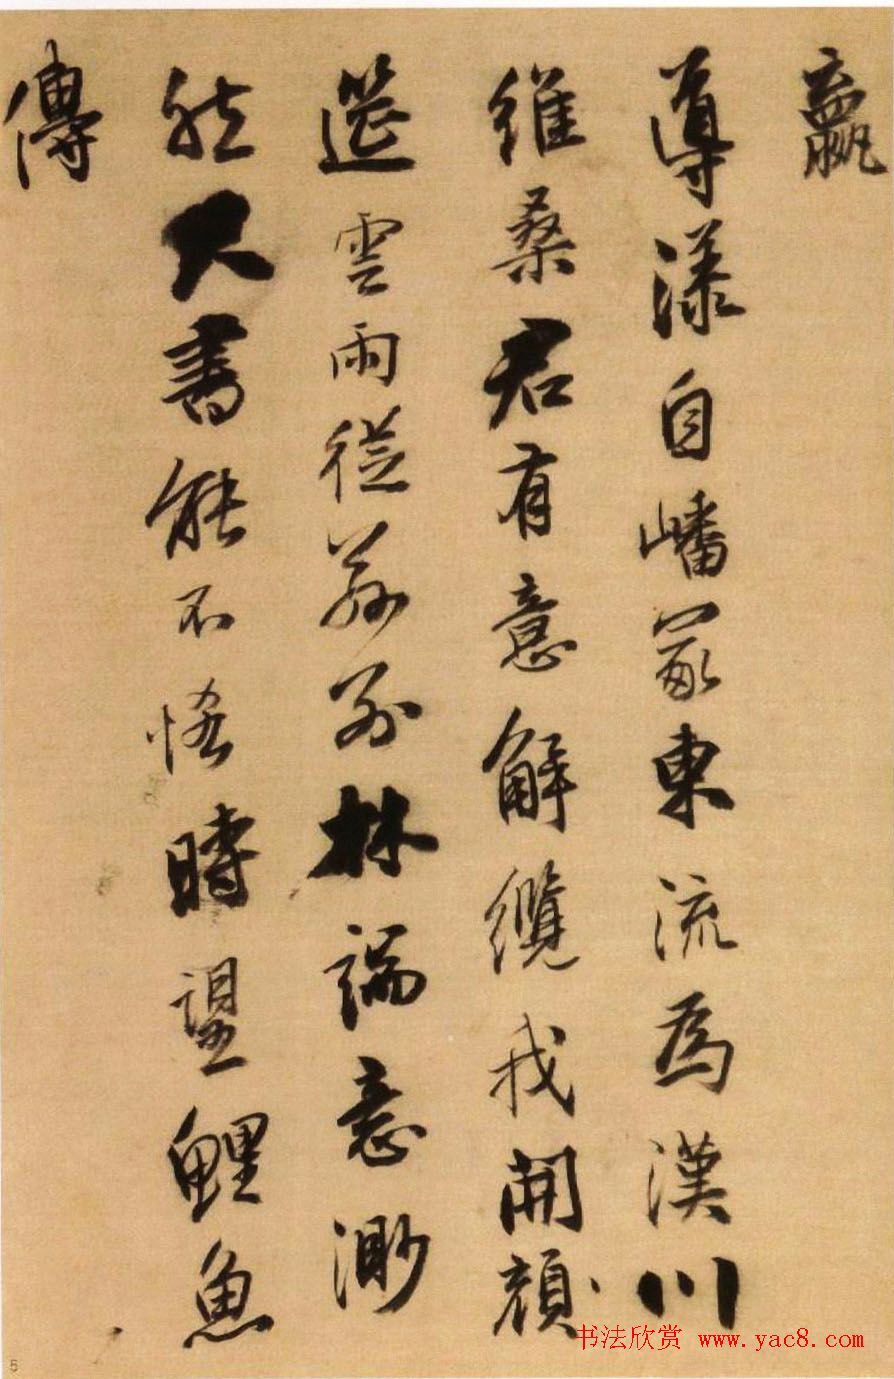 導漾自嶓冢東流為漢川
維桑君有意解纜我開顏
筵雲雨從茲別林端意渺
然尺書能不悋時望鯉魚
傳
书法欣赏 www.yac8.com
5